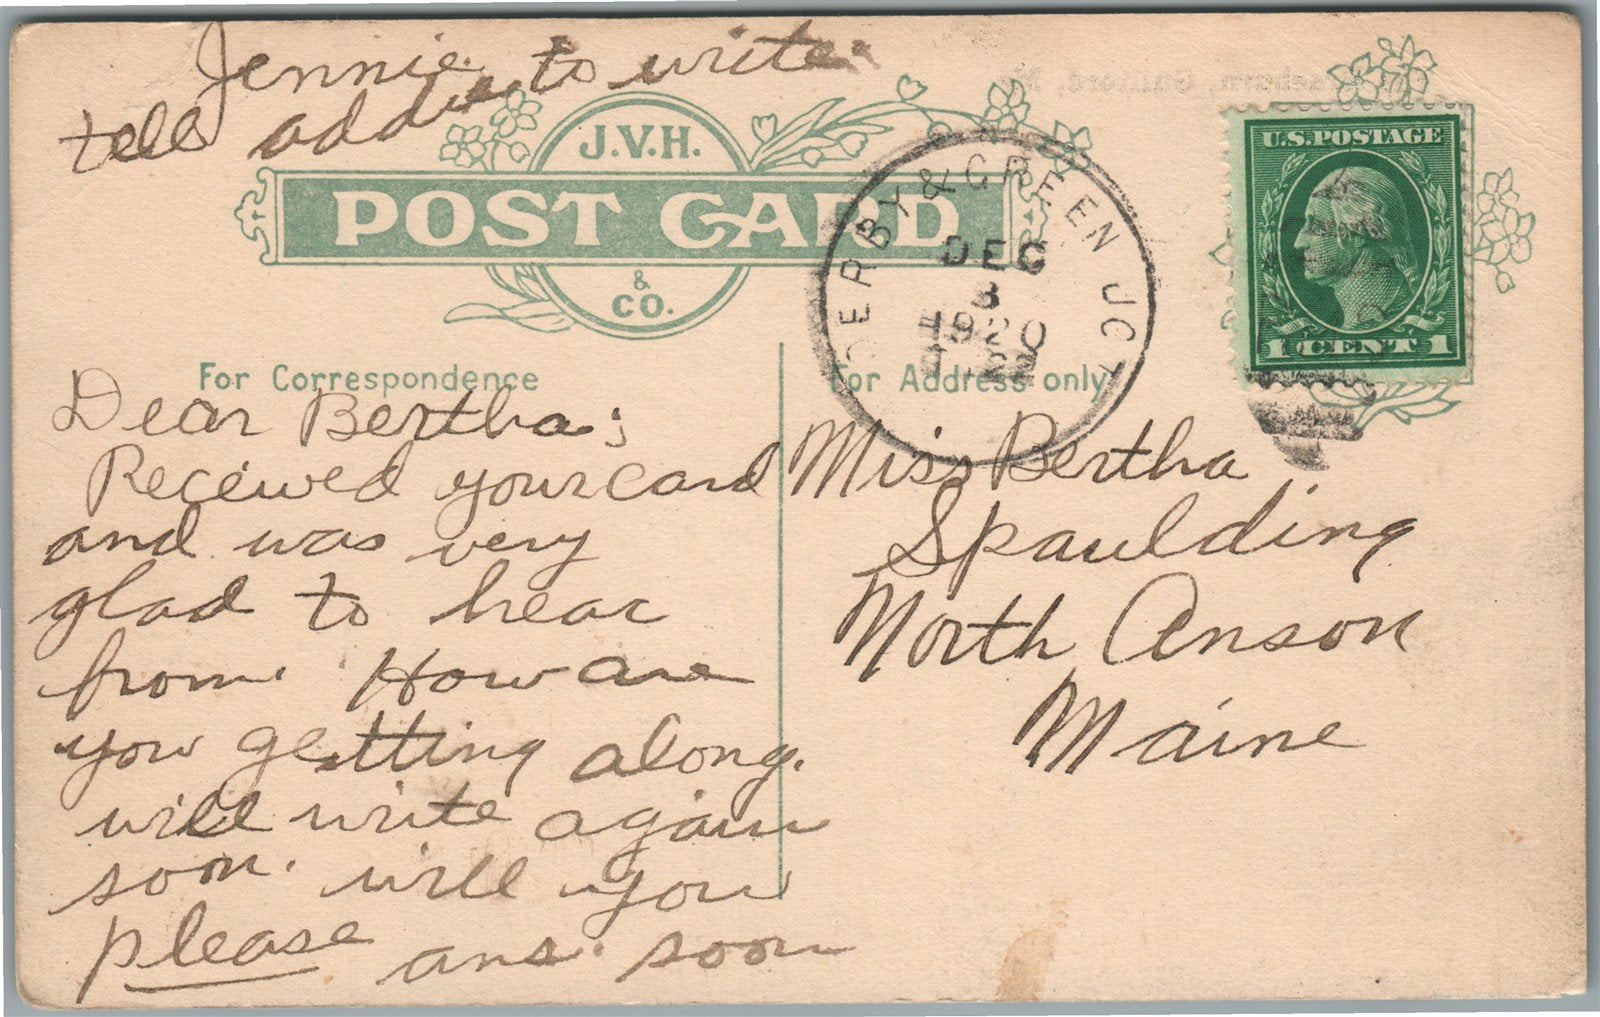 Jennie
tell addie to write.
J.V.H.
POST CARD
& CO.
DERBY & GREEN JCT
DEC
3
1920
U.S. POSTAGE
1 CENT 1
For Correspondence
For Address only
Dear Bertha;
Received your card
and was very
glad to hear
from. How are
you getting along.
will write again
soon. will you
please ans. soon
Miss Bertha
Spaulding
North Anson
Maine